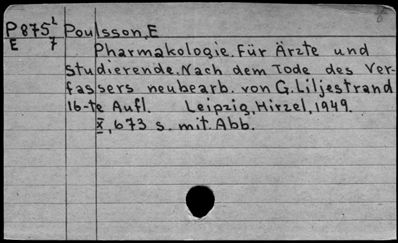 P875ᶦ Poulsson, E
E 7 Pharmakologie. Für Ärzte und
Studierende. Nach dem Tode des Ver-
fassers neubearb. von G. Liljestrand
16-te Aufl. Leipzig, Hirzel, 1949.
X, 673 s. mit. Abb.